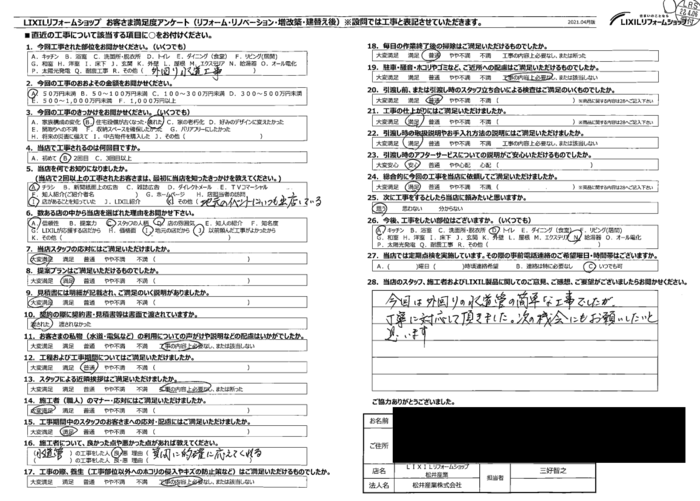 LIXILリフォームショップ お客さま満足度アンケート(リフォーム・リノベーション・増改築・建替え後)※設問では工事と表記させていただきます。
2021.04月版
LIXILリフォームショップ
■ 直近の工事について該当する項目に○をお付けください。
1. 今回工事された部位をお聞かせください。(いくつでも)
A. キッチン B. 浴室 C. 洗面所・脱衣所 D. トイレ E. ダイニング(食堂) F. リビング(居間)
G. 和室 H. 洋室 I. 床下 J. 玄関 K. 外壁 L. 屋根 M. エクステリア N. 給湯器 O. オール電化
P. 太陽光発電 Q. 耐震工事 R. その他( 外回り水道工事 )
2. 今回の工事のおおよその金額をお聞かせください。
A. 50万円未満 B. 50~100万円未満 C. 100~300万円未満 D. 300~500万円未満
E. 500~1,000万円未満 F. 1,000万円以上
3. 今回の工事のきっかけをお聞かせください。(いくつでも)
A. 家族構成の変化 B. 住宅設備が古くなった・壊れた C. 家の老朽化 D. 好みのデザインに変えたかった
E. 間取りへの不満 F. 収納スペースを確保したかった G. バリアフリーにしたかった
H. 将来の災害に備え I. 中古物件を購入した J. その他( )
4. 当店で工事されるのは何回目ですか。
A. 初めて B. 2回目 C. 3回目以上
5. 当店を何でお知りになりましたか。
(当店で2回以上の工事されたお客さまは、最初に当店を知ったきっかけを教えてください。)
A. チラシ B. 新聞紙面上の広告 C. 雑誌広告 D. ダイレクトメール E. TVコマーシャル
F. 知人紹介(ご紹介者名 ) G. ホームページ H. 店担当者の訪問
I. 店があることを知っていた J. LIXIL紹介 K. その他( 地元のイベントにいつも出店している
6. 数ある店の中から当店を選ばれた理由をお聞かせ下さい。
A. 信頼性 B. 提案力 C. スタッフの人柄 D. 店の雰囲気 E. 知人の紹介 F. 知名度
G. LIXILが応援する店だから H. 価格面 I. 地元の店だから J. 以前頼んだ工事がよかったから
K. その他( )
7. 当店スタッフの応対にはご満足いただけましたか。
大変満足 満足 普通 やや不満 不満 ( )
8. 提案プランはご満足いただけましたか。
大変満足 満足 普通 やや不満 不満 ( )
9. 見積書には明細が記載され、ご満足のいく説明がありましたか。
大変満足 満足 普通 やや不満 不満 ( )
10. 契約の際に契約書・見積書等は書面で渡されていますか。
渡された 渡されなかった
11. お客さまの私物(水道・電気など)の利用についての声がけや説明などの配慮はいかがでしたか。
大変満足 満足 普通 やや不満 不満 工事の内容上必要なし、または該当しない
12. 工程および工事期間についてはご満足いただけましたか。
大変満足 満足 普通 やや不満 不満 ( )
13. スタッフによる近隣挨拶はご満足いただけましたか。
大変満足 満足 普通 やや不満 不満 工事の内容上必要なし、または断った
14. 施工者(職人)のマナー・応対にはご満足いただけましたか。
大変満足 満足 普通 やや不満 不満 ( )
15. 工事期間中のスタッフのお客さまへの応対・配慮にはご満足いただけましたか。
大変満足 満足 普通 やや不満 不満 ( )
16. 施工者について、良かった点や悪かった点があれば教えてください。
( 水道管 )の工事をした人 良・悪 理由( 質問に的確に応えてくれる
( )の工事をした人 良・悪 理由( )
17. 工事の際、養生(工事部位以外へのホコリの侵入やキズの防止策など)はご満足いただけるものでしたか。
大変満足 満足 普通 やや不満 不満 工事の内容上必要なし、または該当しない
18. 毎日の作業終了後の掃除はご満足いただけるものでしたか。
大変満足 満足 普通 やや不満 不満 工事の内容上必要なし、または断った
19. 駐車・騒音・ホコリやゴミなど、ご近所への配慮はご満足いただけるものでしたか。
大変満足 満足 普通 やや不満 不満 工事の内容上必要なし、または該当しない
20. 引渡し前、または引渡し時のスタッフ立ち合いによる検査はご満足のいくものでしたか。
大変満足 満足 普通 やや不満 不満 ( )
21. 工事の仕上がりにはご満足いただけましたか。
大変満足 満足 普通 やや不満 不満 ( )
22. 引渡し時の取扱説明やお手入れ方法の説明にはご満足いただけましたか。
大変満足 満足 普通 やや不満 不満 工事の内容上必要なし、または該当しない
23. 引渡し時のアフターサービスについての説明がご安心いただけるものでしたか。
大変安心 安心 普通 やや心配 心配 ( )
24. 総合的に今回の工事を当店に依頼してご満足いただけましたか。
大変満足 満足 普通 やや不満 不満 ( )
25. 次に工事をするとしたら当店に頼みたいと思いますか。
思う 思わない 分からない
26. 今後、工事をしたい部位はございますか。(いくつでも)
A. キッチン B. 浴室 C. 洗面所・脱衣所 D. トイレ E. ダイニング(食堂) F. リビング(居間)
G. 和室 H. 洋室 I. 床下 J. 玄関 K. 外壁 L. 屋根 M. エクステリア N. 給湯器 O. オール電化
P. 太陽光発電 Q. 耐震工事 R. その他( )
27. 当店では定期点検を実施しています。その際の事前電話連絡のご希望曜日・時間帯はございますか。
A. ( )曜日 ( )時頃連絡希望 B. 連絡は特に必要なし C. いつでも可
28. 当店のスタッフ、施工者およびLIXIL製品に関してのご意見、ご感想、ご要望がございましたらお聞かせください。
今回は外回りの水道管の簡単な工事でしたが、
丁寧に対応して頂きました。次の機会にもお願いしたいと
思います
ご協力ありがとうございました。
お名前
ご住所
店名
LIXILリフォームショップ
松井産業
担当
三好智之
法人名
松井産業株式会社